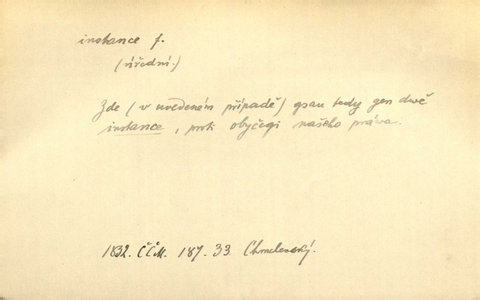 instance f.
(úřední.)
Zde (v uvedeném případě) gsau tedy gen dwě
instance, proti obyčegi našeho práva.
1832. ČČM. 187. 33. Chmelenský.